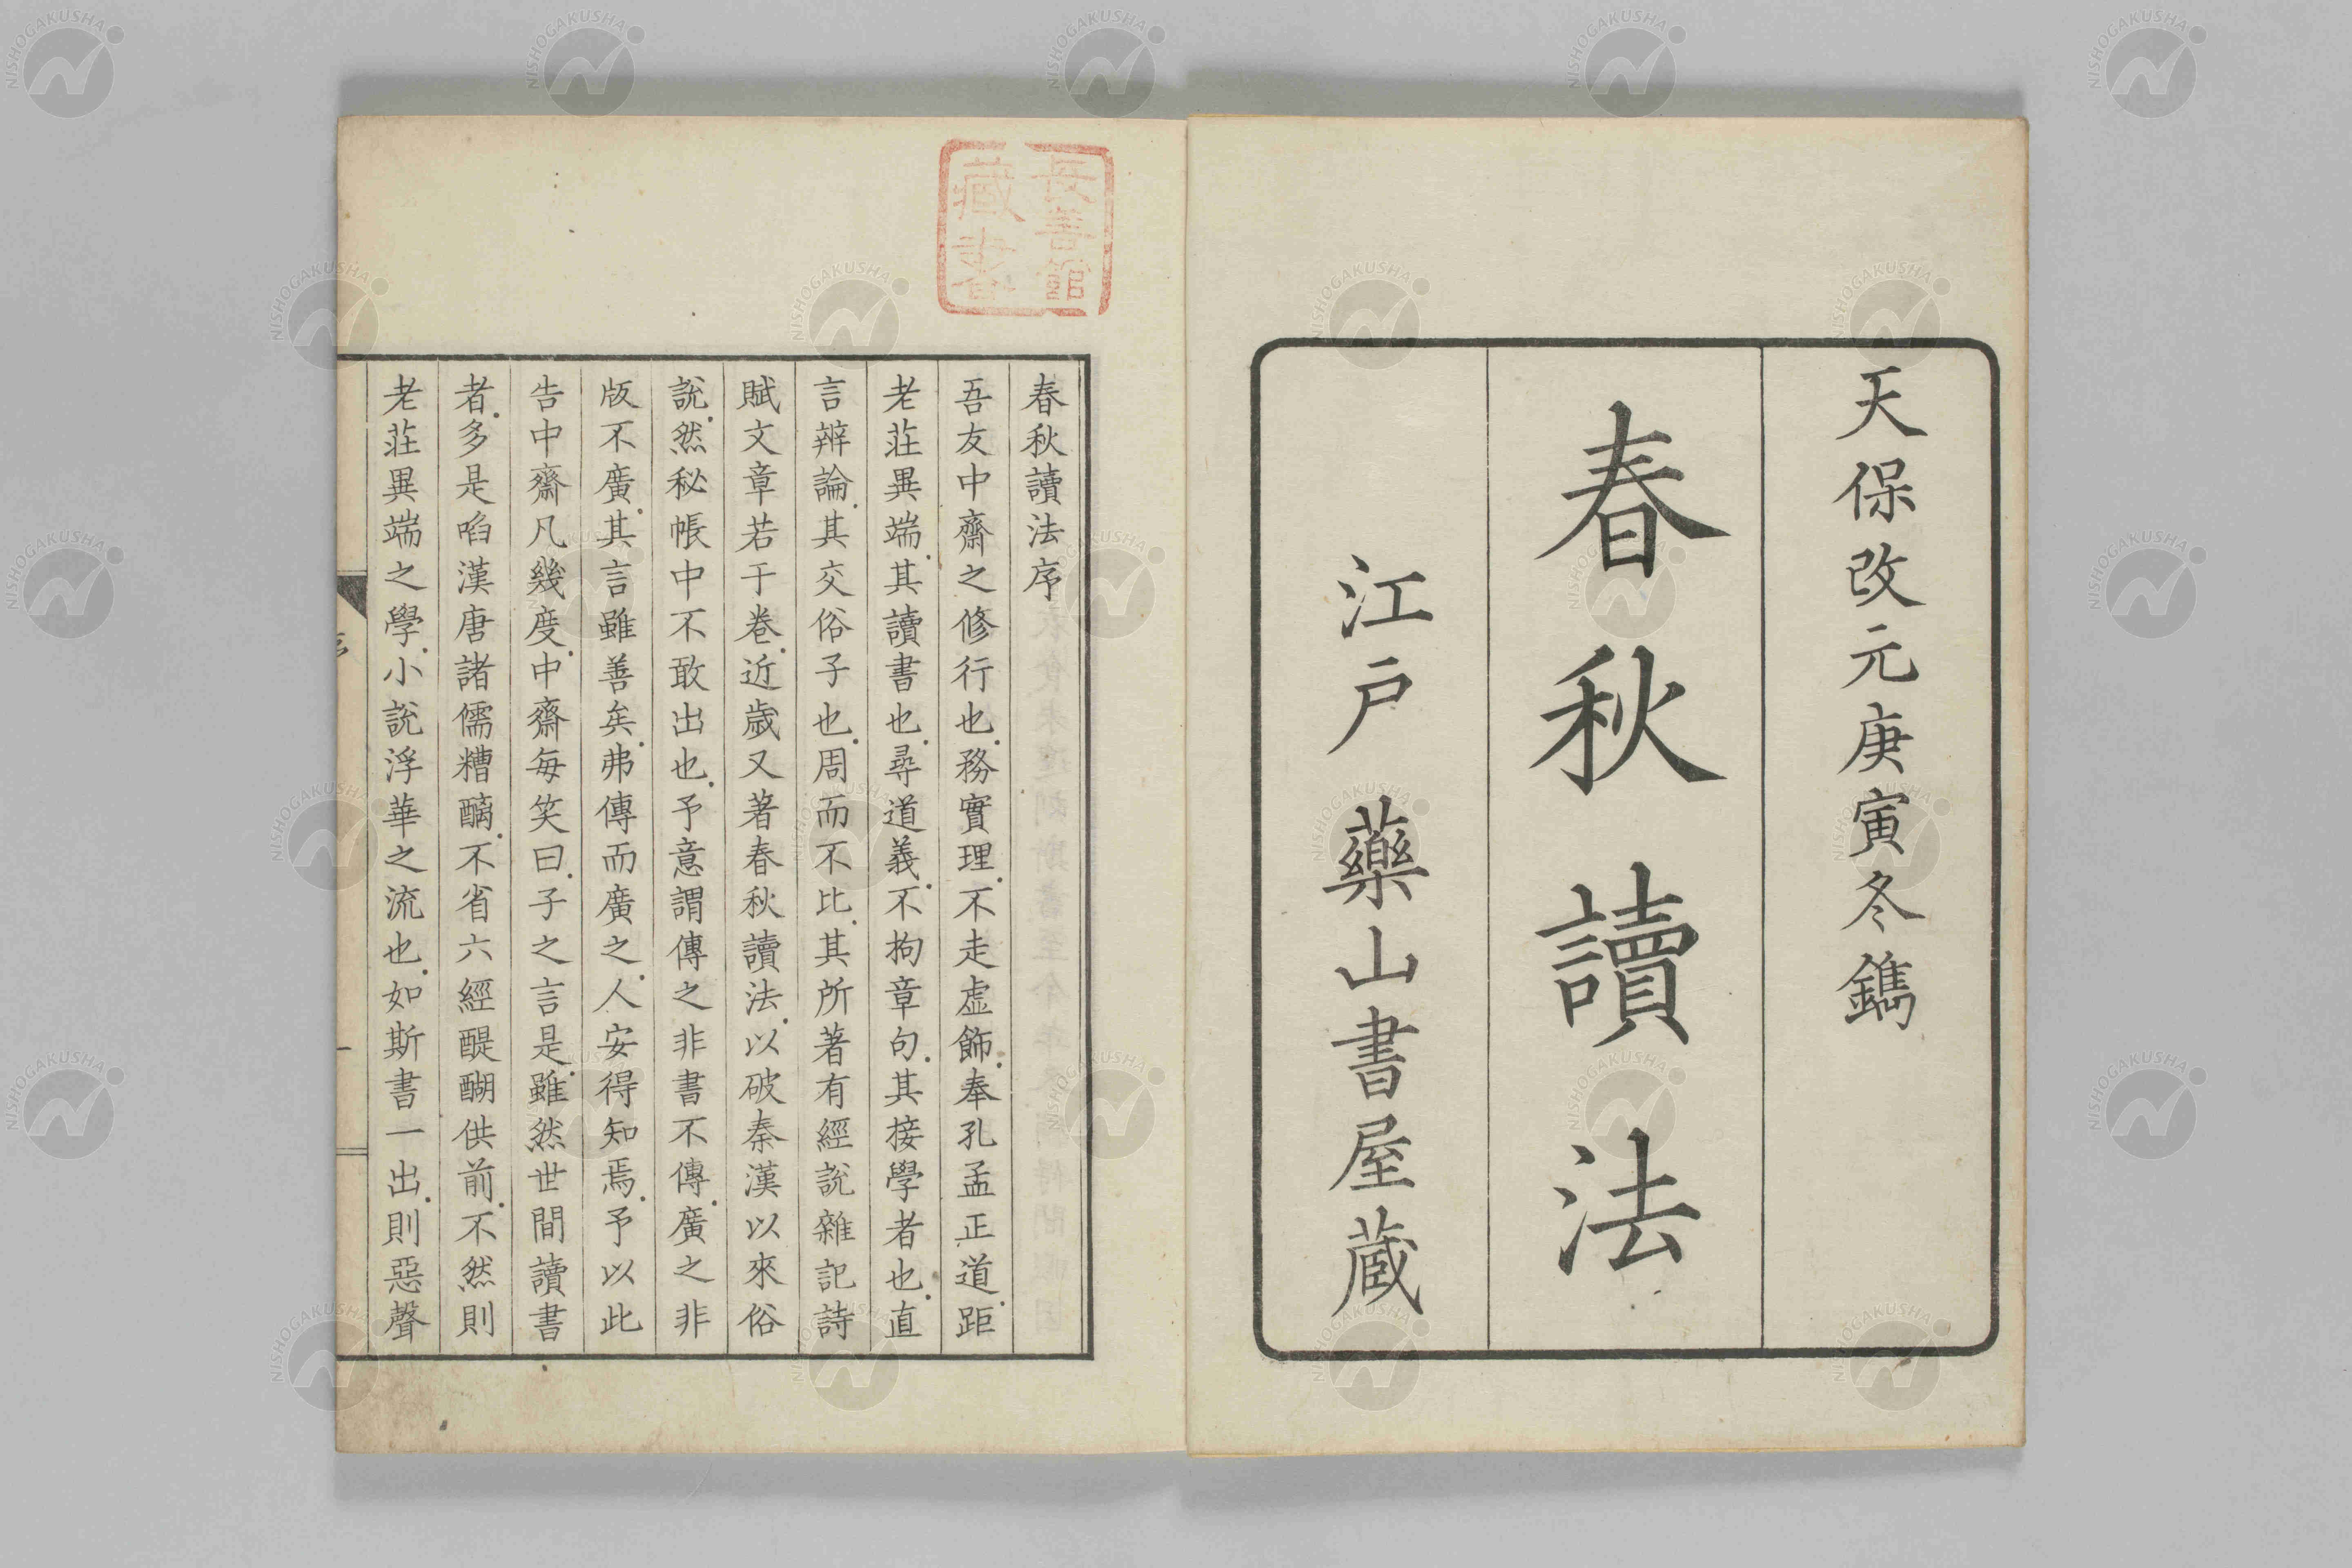 天保改元庚寅冬鐫
春秋讀法
江戸 藥山書屋蔵
長善館
藏書
春秋讀法序
吾友中齋之修行也.務實理.不走虛飾.奉孔孟正道.距
老莊異端.其讀書也.尋道義.不拘章句.其接學者也.直
言辨論.其交俗子也.周而不比.其所著有經說雜記詩
賦文章若干卷.近歲又著春秋讀法.以破秦漢以來俗
說.然秘帳中不敢出也.予意謂傳之非書不傳.廣之非
版不廣.其言雖善矣.弗傳而廣之.人安得知焉.予以此
告中齋凡幾度.中齋每笑曰.子之言是.雖然世間讀書
者.多是啗漢唐諸儒糟醨.不省六經醍醐供前.不然則
老莊異端之學.小說浮華之流也.如斯書一出.則惡聲
NISHOGAKUSHA